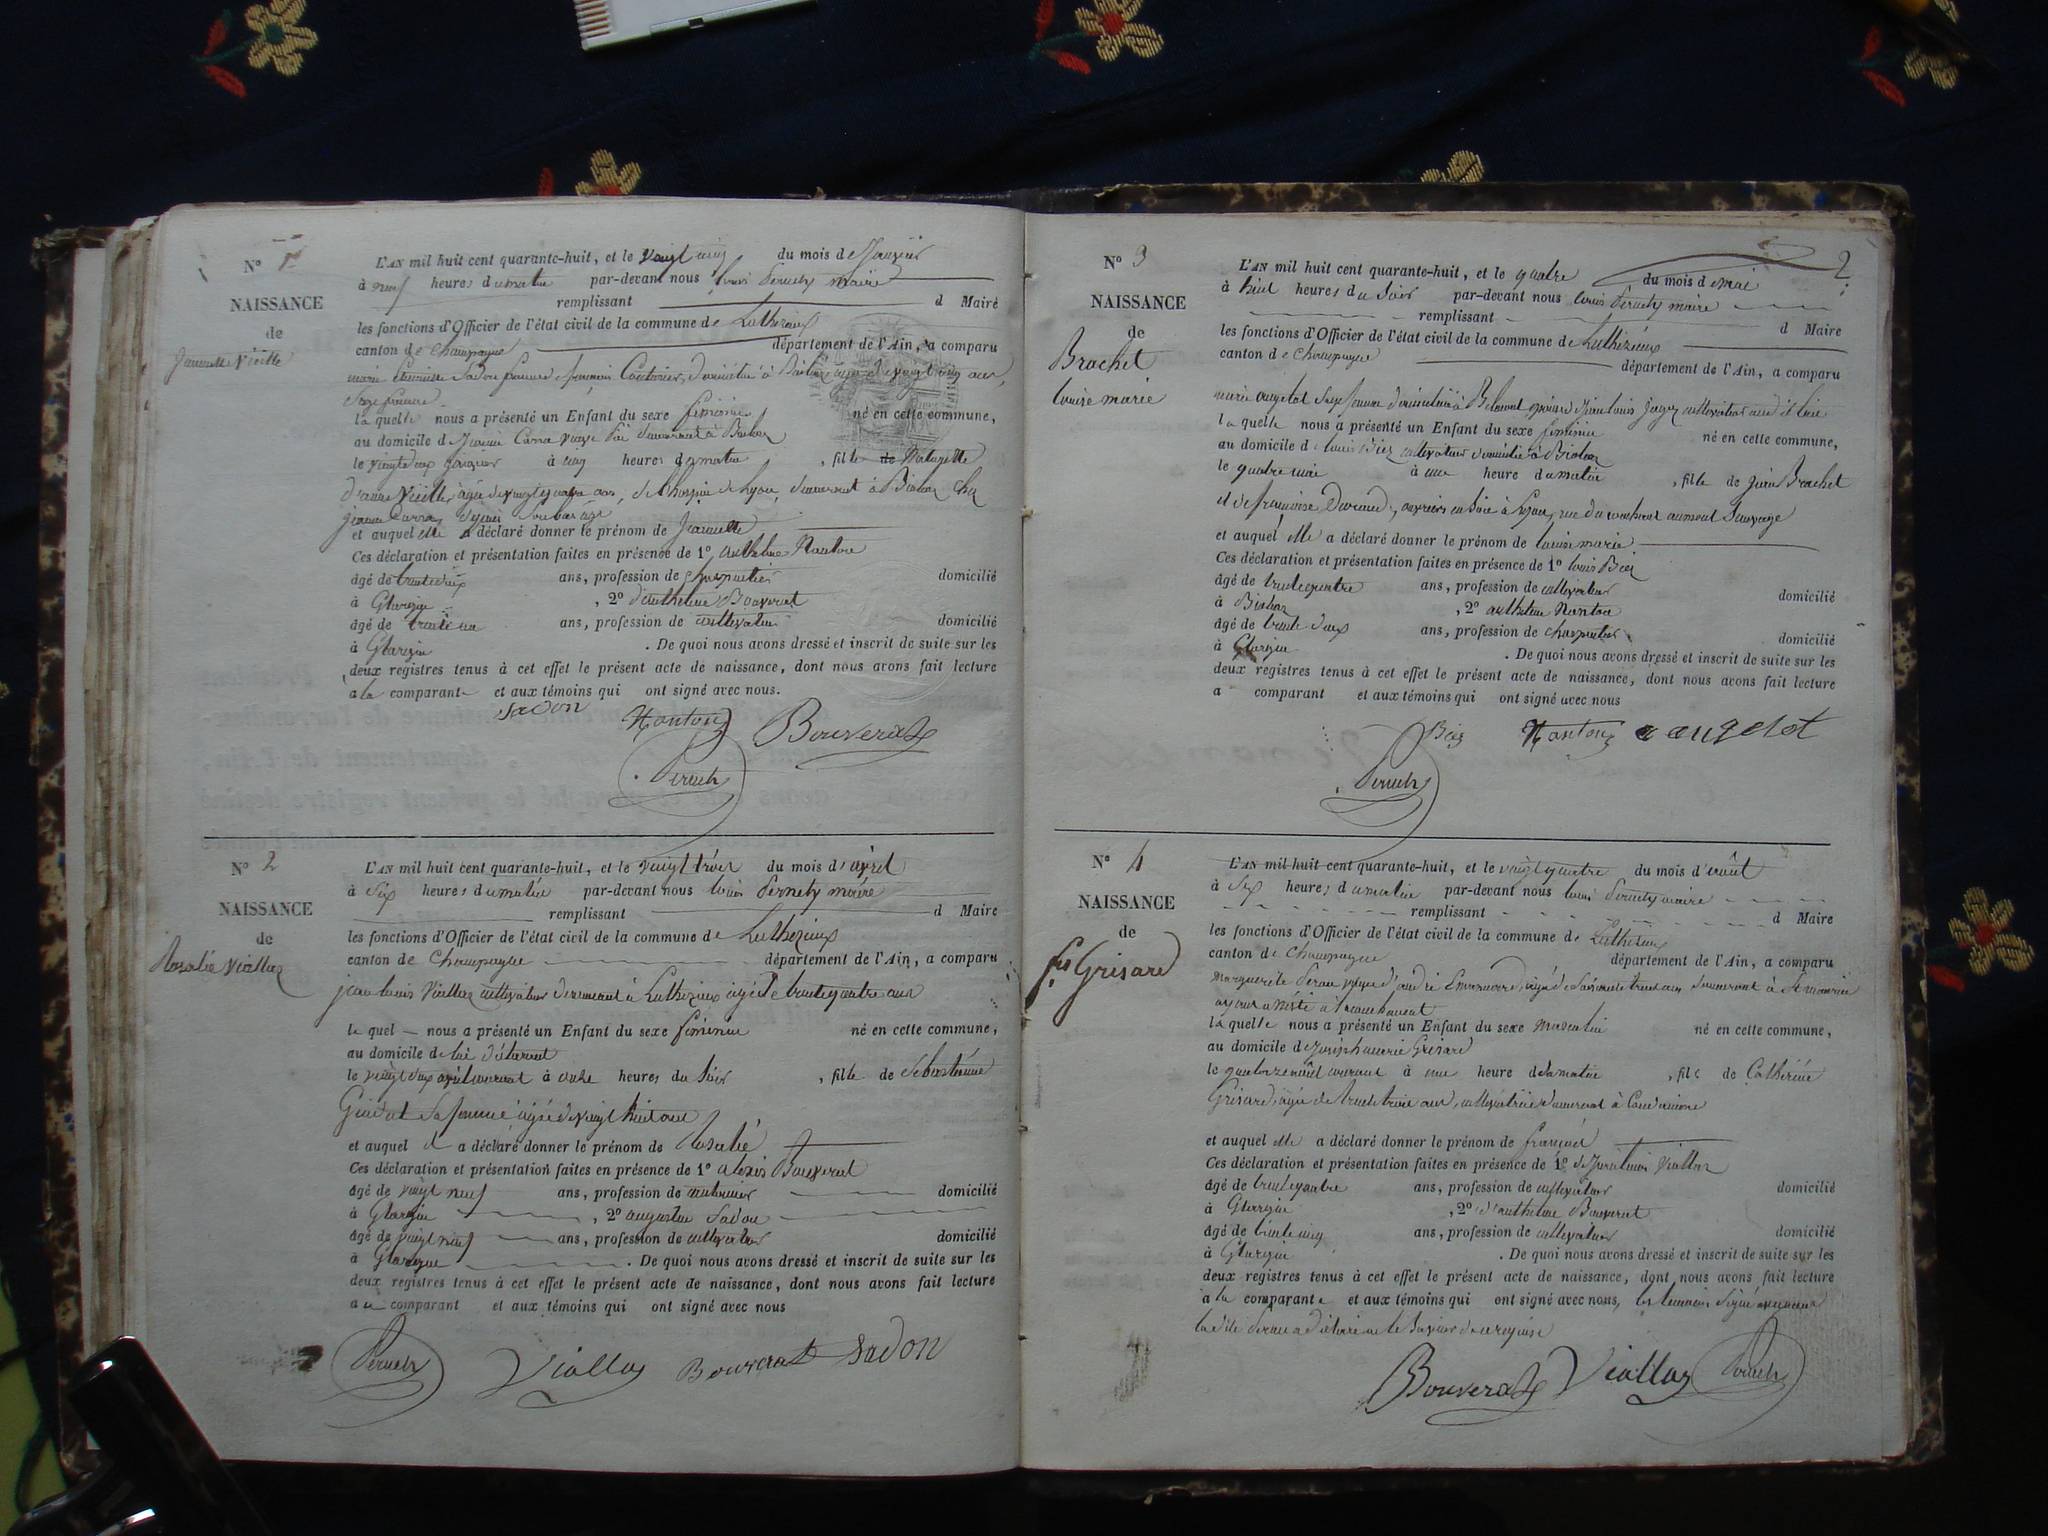 N° 1er
NAISSANCE
de
Jeannette Vieille
L'AN mil huit cent quarante-huit, et le vingt cinq du mois de Janvier
à neuf heures du matin par-devant nous Louis Pernety maire
remplissant d Maire
les fonctions d'Officier de l'état civil de la commune de Luthezieux
canton de Champagne département de l'Ain, a comparu
marie femme françois domiciliée à de vingt cinq ans,
Sage femme
la quelle nous a présenté un Enfant du sexe féminin né en cette commune,
au domicile de Carra veuve demeurant à
le vingt deux janvier à cinq heures du matin, fille de Naturelle
d'anne Vieille, agée de vingt quatre ans, de l'hospice de Lyon, demeurant à chez
Carra, depuis
et auquel elle a déclaré donner le prénom de Jeannette
Ces déclaration et présentation faites en présence de 1° anthelme Nanton
âgé de trente deux ans, profession de charpentier domicilié
à Glargin, 2° d'anthelme Bouverat
âgé de ans, profession de cultivateur domicilié
à Glargin. De quoi nous avons dressé et inscrit de suite sur les
deux registres tenus à cet effet le présent acte de naissance, dont nous avons fait lecture
à la comparante et aux témoins qui ont signé avec nous.
Sadon Nanton Bouverat
Pernety
N° 2
NAISSANCE
de
Rosalie Viallaz
L'AN mil huit cent quarante-huit, et le vingt trois du mois d'avril
à Six heures du matin par-devant nous Louis Pernety maire
remplissant d Maire
les fonctions d'Officier de l'état civil de la commune de Luthezieux
canton de Champagne département de l'Ain, a comparu
jean louis Viallaz cultivateur demeurant à Luthezieux agé de trente quatre ans
le quel nous a présenté un Enfant du sexe féminin né en cette commune,
au domicile de lui déclarant
le vingt deux avril courant à onze heures du Soir, fille de Sébastienne
Sa femme agée de vingt huit ans
et auquel il a déclaré donner le prénom de Rosalie
Ces déclaration et présentation faites en présence de 1° alexis Bouverat
âgé de vingt neuf ans, profession de domicilié
à Glargin, 2° augustin Sadon
âgé de vingt neuf ans, profession de cultivateur domicilié
à Glargin. De quoi nous avons dressé et inscrit de suite sur les
deux registres tenus à cet effet le présent acte de naissance, dont nous avons fait lecture
au comparant et aux témoins qui ont signé avec nous
Pernety Viallaz Bouverat Sadon
2
N° 3
NAISSANCE
de
Brachet
louise marie
L'AN mil huit cent quarante-huit, et le quatre du mois de mai
à huit heures du Soir par-devant nous Louis Pernety maire
remplissant d Maire
les fonctions d'Officier de l'état civil de la commune de Luthézieux
canton de Champagne département de l'Ain, a comparu
marie angelot Sage femme domiciliée à Belmont épouse de Jean louis cultivateur
la quelle nous a présenté un Enfant du sexe féminin né en cette commune,
au domicile de louis Biez cultivateur domicilié à
le quatre mai à une heure du matin, fille de Brachet
et de françoise Durand, ouvriers en Soie à Lyon, rue
et auquel elle a déclaré donner le prénom de louise marie
Ces déclaration et présentation faites en présence de 1° louis Biez
âgé de trente quatre ans, profession de cultivateur domicilié
à, 2° anthelme Nanton
âgé de trente deux ans, profession de charpentier domicilié
à Glargin. De quoi nous avons dressé et inscrit de suite sur les
deux registres tenus à cet effet le présent acte de naissance, dont nous avons fait lecture
a comparant et aux témoins qui ont signé avec nous
Biez Nanton angelot
Pernety
N° 4
NAISSANCE
de
fs Grisard
L'AN mil huit cent quarante-huit, et le vingt quatre du mois d'août
à Six heures du matin par-devant nous Louis Pernety maire
remplissant d Maire
les fonctions d'Officier de l'état civil de la commune de Luthézieux
canton de Champagne département de l'Ain, a comparu
marguerite veuve d'andré agée de Soixante trois ans demeurant à St maurice
ayant assisté à l'accouchement
la quelle nous a présenté un Enfant du sexe masculin né en cette commune,
au domicile de Joseph marie Grisard
le août courant à une heure du matin, fils de Catherine
Grisard, agée de trente trois ans, cultivatrice demeurant à
et auquel elle a déclaré donner le prénom de françois
Ces déclaration et présentation faites en présence de 1° de Jean louis Viallaz
âgé de trente quatre ans, profession de cultivateur domicilié
à Glargin, 2° d'anthelme Bouverat
âgé de trente cinq ans, profession de cultivateur domicilié
à Glargin. De quoi nous avons dressé et inscrit de suite sur les
deux registres tenus à cet effet le présent acte de naissance, dont nous avons fait lecture
à la comparante et aux témoins qui ont signé avec nous, les témoins Signé avec nous
la dite a déclaré ne le Savoir de ce requise
Bouverat Viallaz Pernety